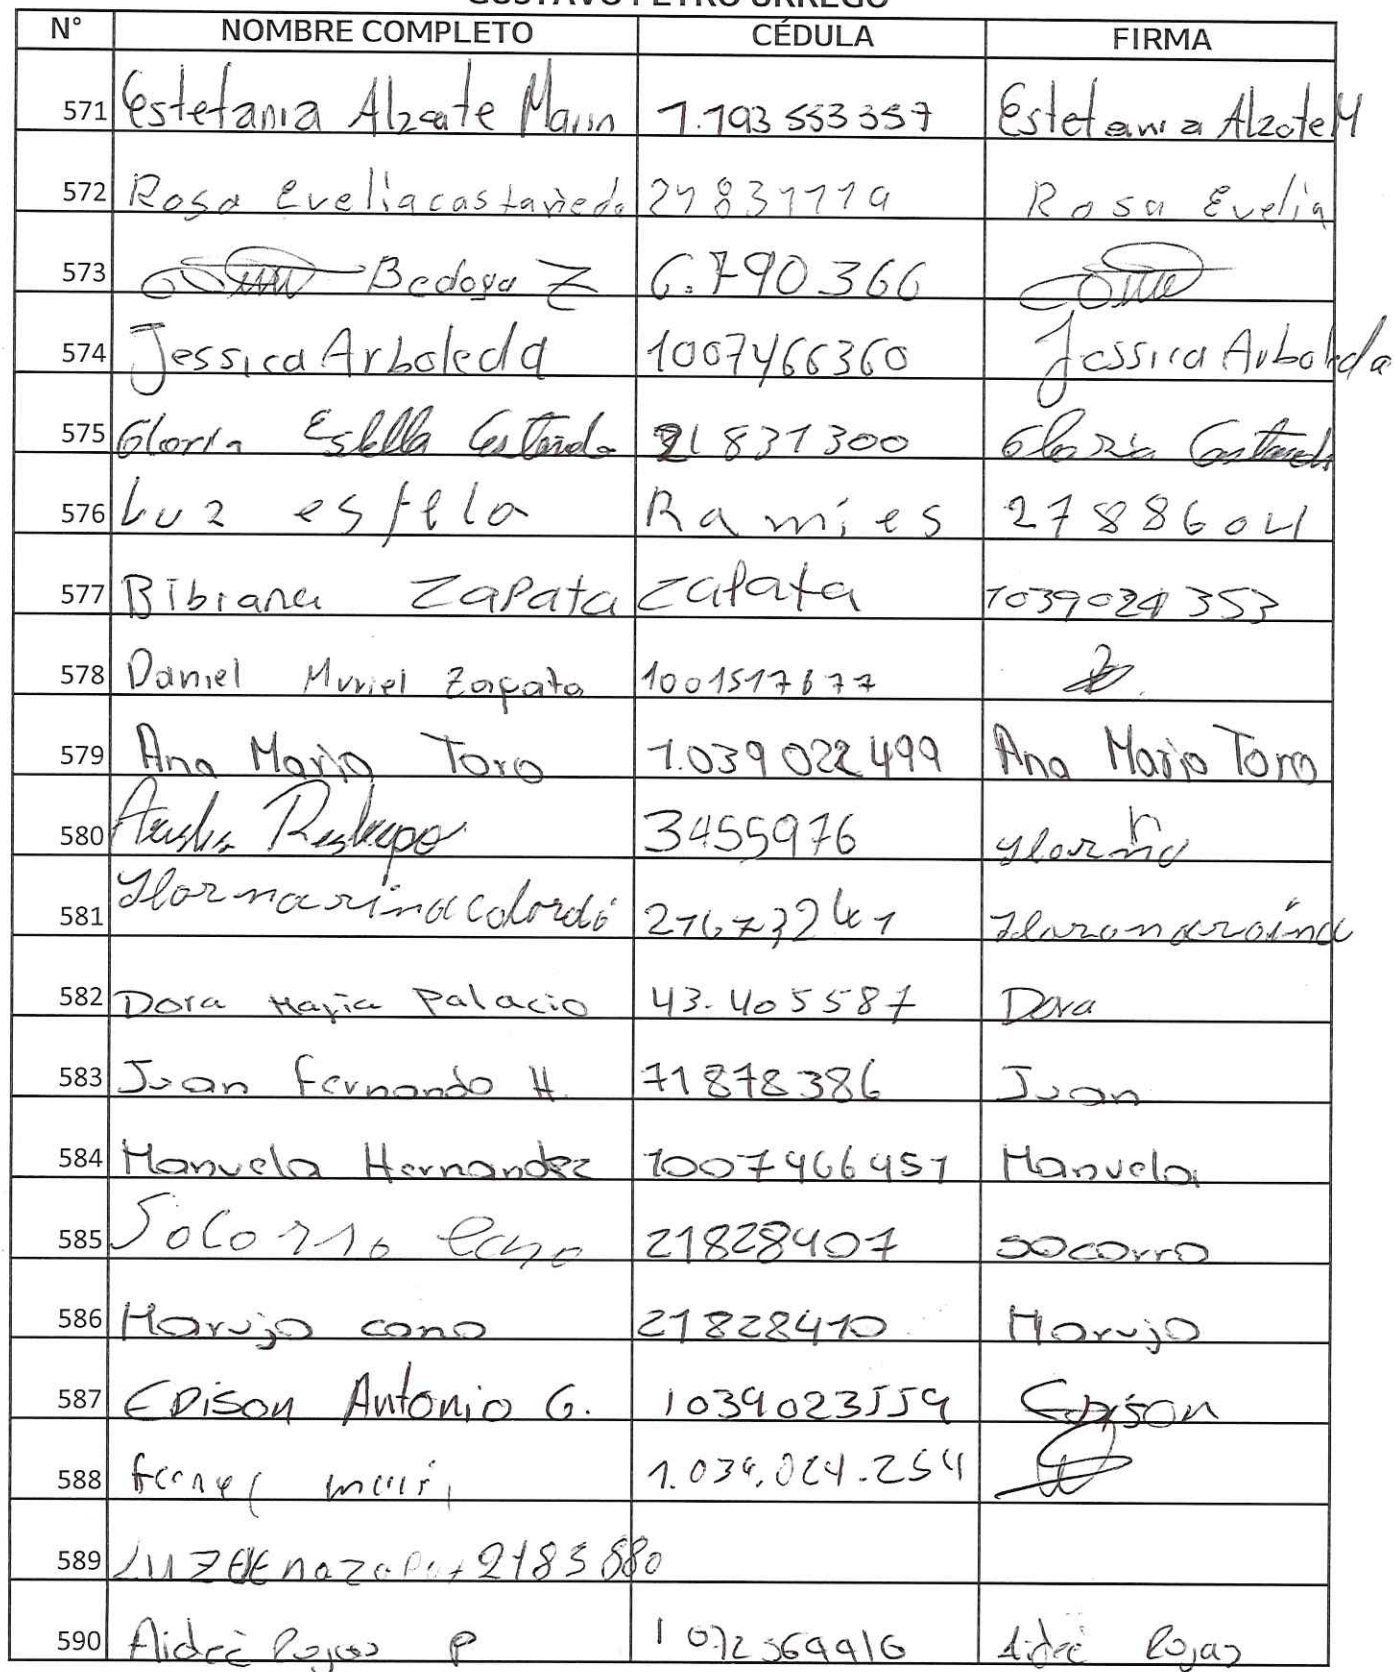 GUSTAVO PETRO URREGO
N° NOMBRE COMPLETO CÉDULA FIRMA
571 Estefania Alzate Marin 1.193553357 Estefania Alzate M
572 Rosa Eveliacastañeda 21831119 Rosa Evelia
573 Bedoya Z 6.790.366
574 Jessica Arboleda 1007466360 Jessica Arboleda
575 Gloria Estella Castañeda 21831300 Gloria Castañeda
576 Luz estela Ramires 2788604
577 Bibiana Zapata zapata 1039024353
578 Daniel Muriel Zapata 1001517677
579 Ana Maria Toro 1.039022499 Ana Maria Toro
580 Restrepo 3455976
581 Flormarina 21673241
582 Dora Maria Palacio 43.405587 Dora
583 Juan Fernando H. 71878386 Juan
584 Manuela Hernandez 1007466451 Manuela
585 Socorro cano 21828407 socorro
586 Maruja cano 21828410 Maruja
587 EDison Antonio G. 1039023559 EDison
588 1.039.024.254
589 LUZ 2183880
590 Aideé Rojas P 1072369916 Aideé Rojas